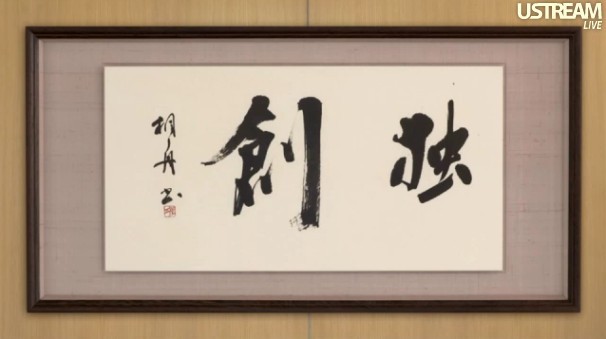 USTREAM
LIVE
独創